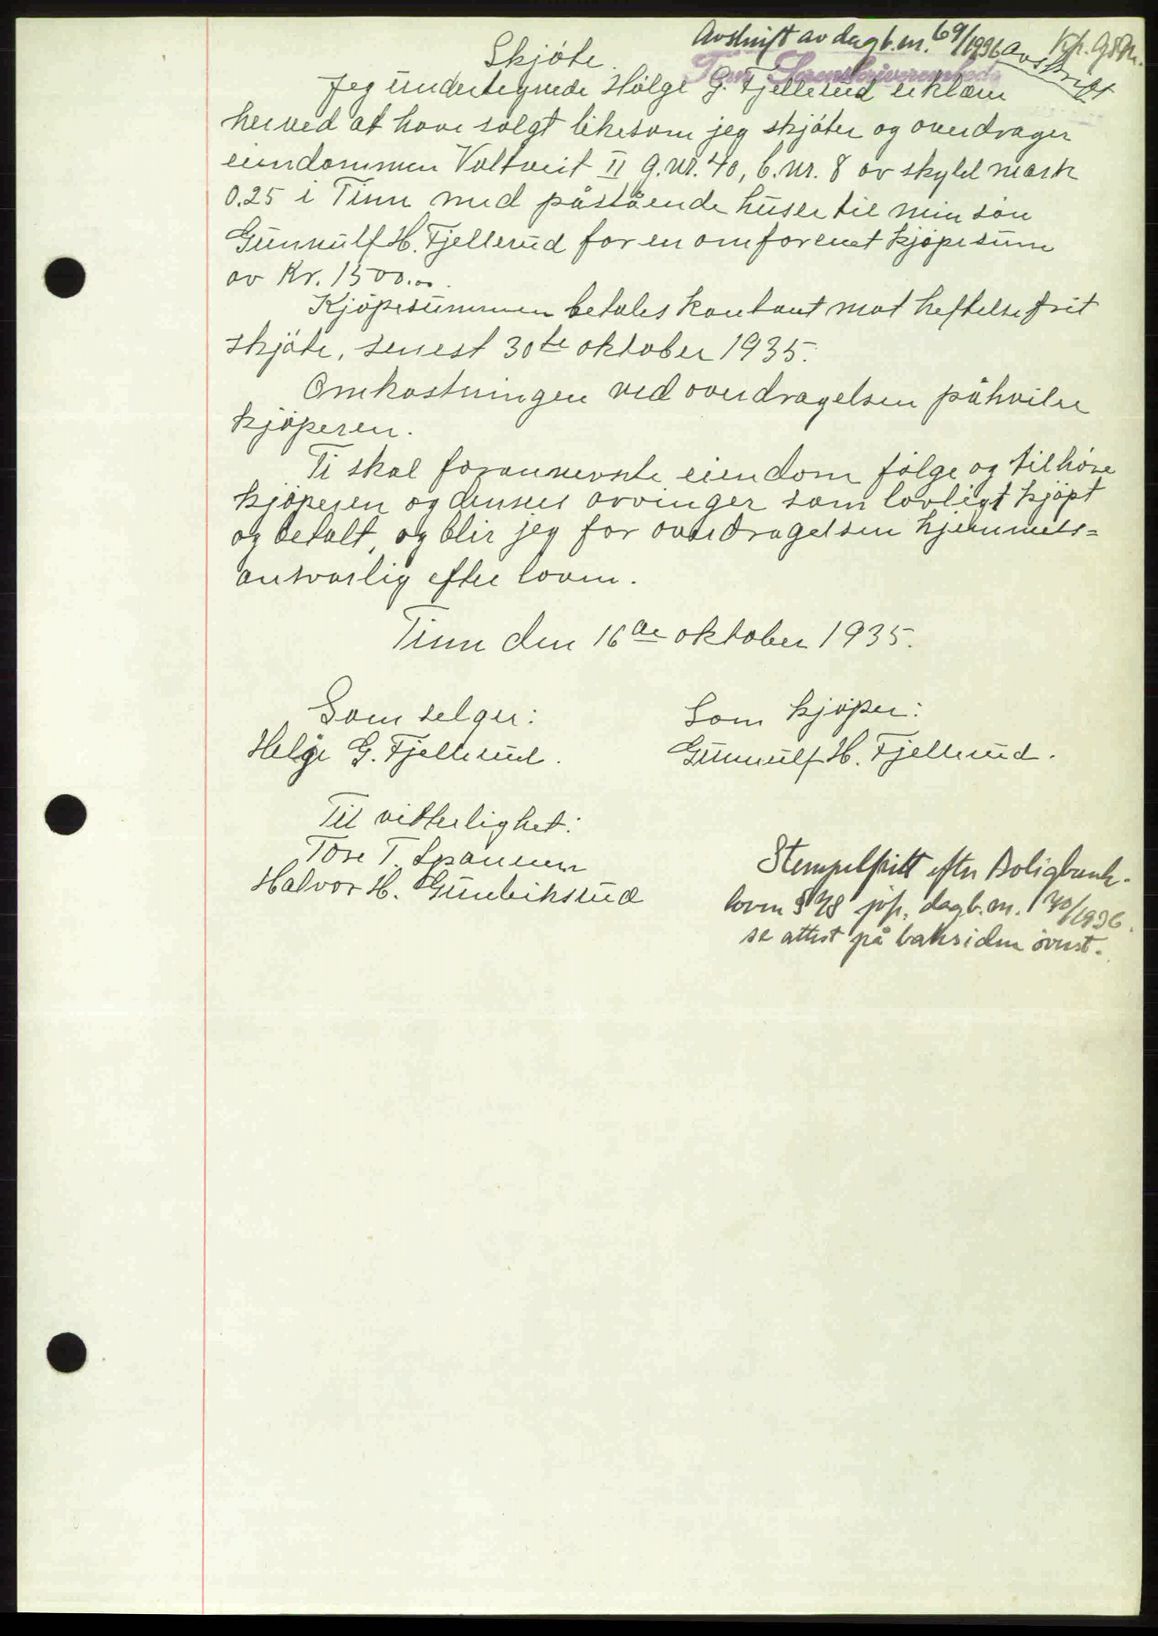 Avskrift av dagb.nr. 69/1936 avskrift
Tinn Sorenskriverembede
Skjöte.
Jeg undertegnede Helge G. Fjellerud erklærer
herved at have solgt likesom jeg skjöter og overdrager
eiendommen Valtveit II g.nr. 40, b.nr. 8 av skyld mark
0.25 i Tinn med påstående huser til min sön
Gunnulf H. Fjellerud for en omforenet kjöpesum
av Kr. 1500.00.
Kjöpesummen betales kontant mot heftelsefrit
skjöte, senest 30te oktober 1935.
Omkostningen ved overdragelsen påhviler
kjöperen.
Ti skal forannevnte eiendom fölge og tilhöre
kjöperen og dennes arvinger som lovligt kjöpt
og betalt, og blir jeg for overdragelsen hjemmels=
ansvarlig efter loven.
Tinn den 16de oktober 1935.
Som selger:
Helge G. Fjellerud.
Som kjöper:
Gunnulf H. Fjellerud.
Til vitterlighet:
Tore T.
Halvor H. Gunleiksrud
Stempelfritt efter Boligbank-
loven § 48 jvf. dagb.nr. 70/1936.
se attest på baksiden överst.